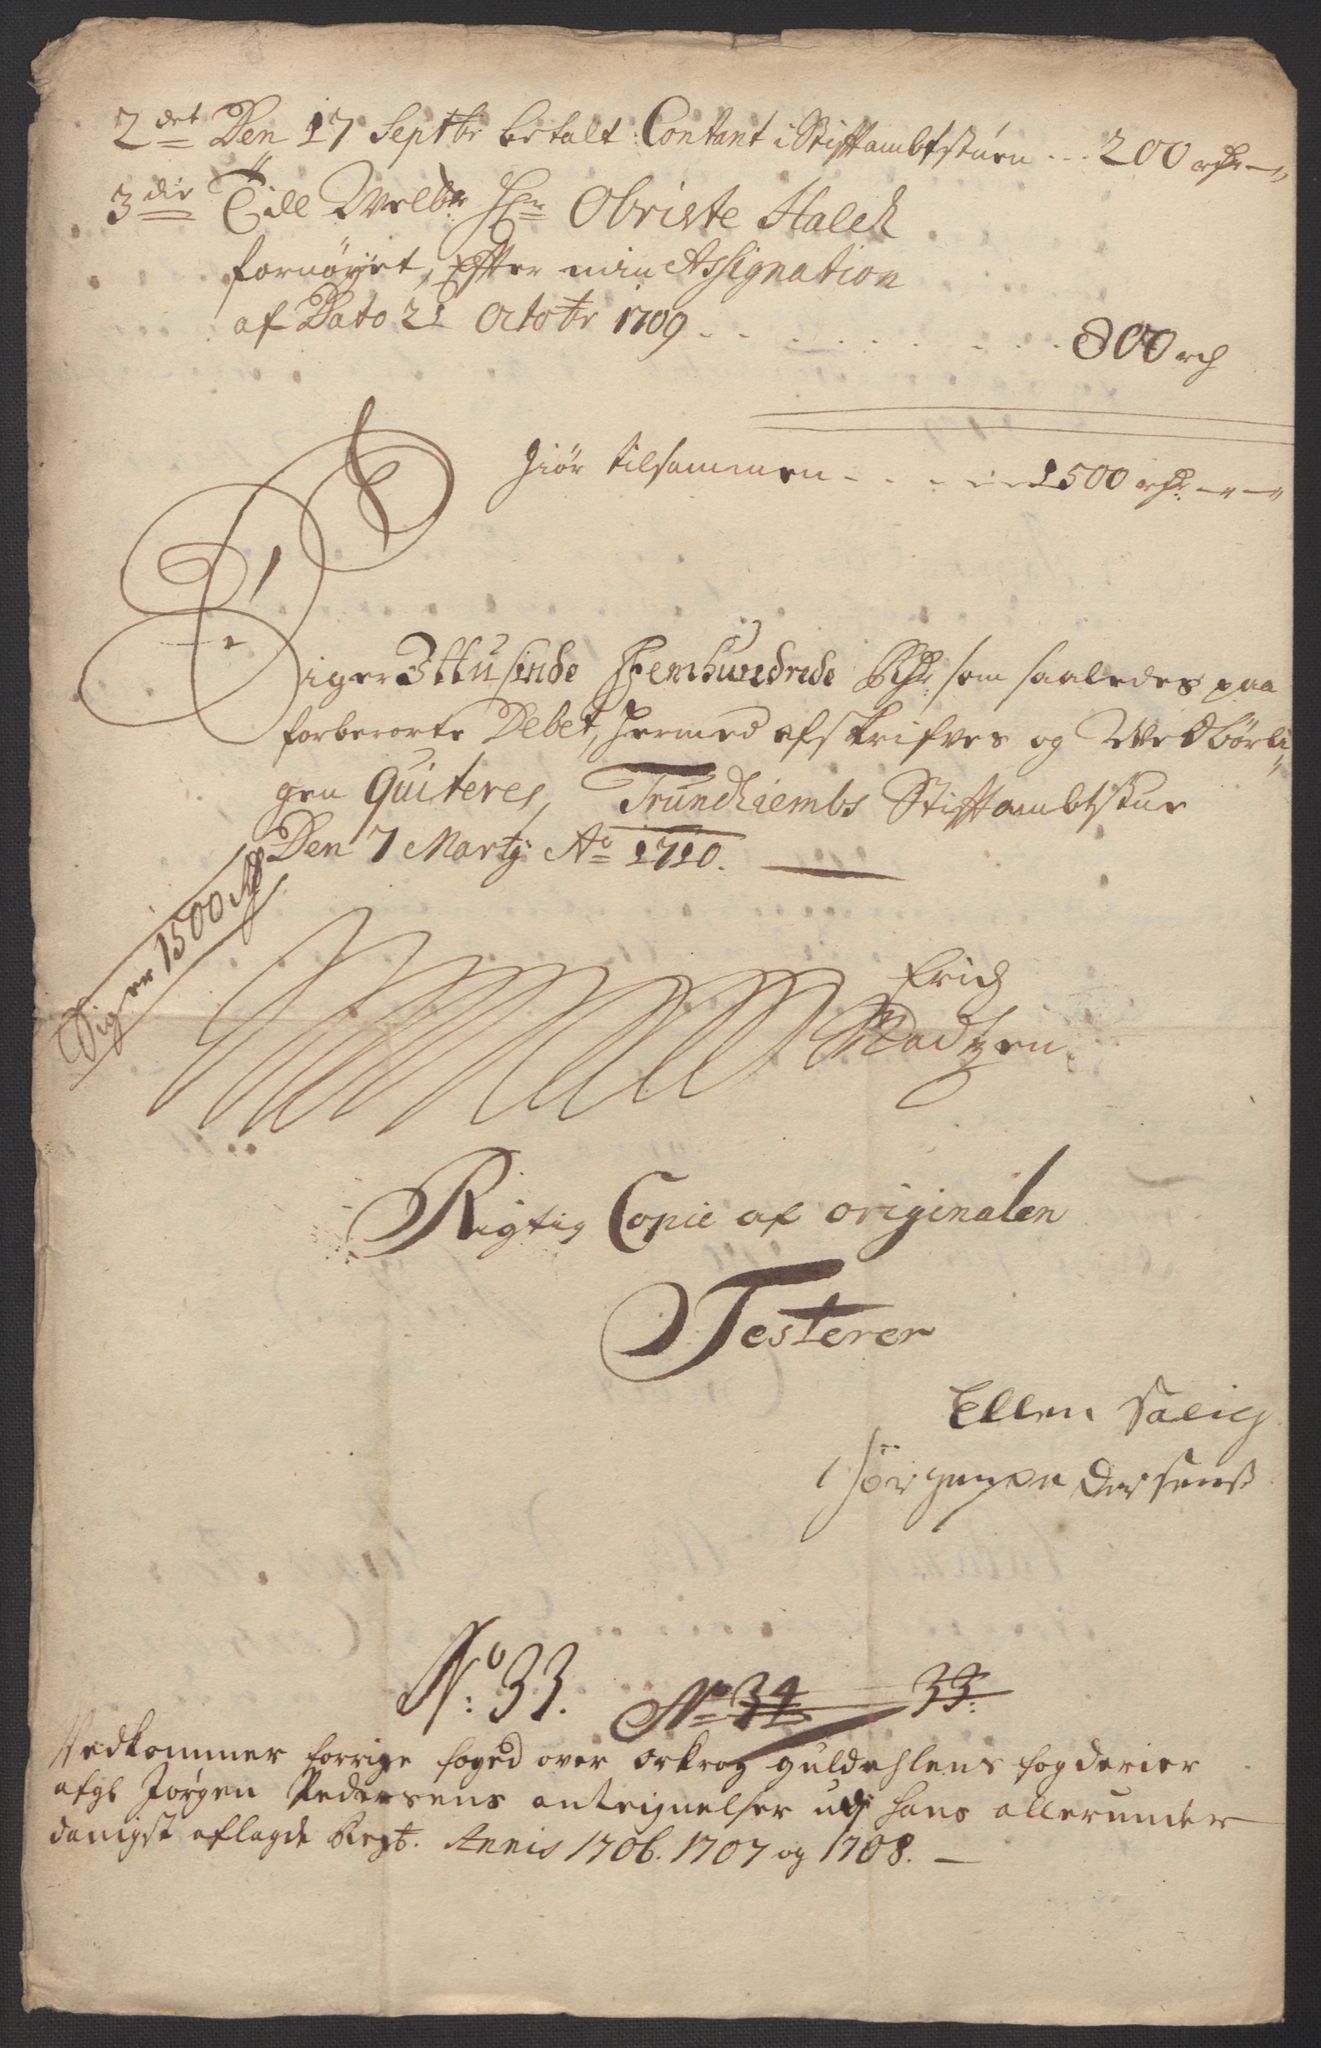 2det Den 17 Septbr betalt Contant i Stiftambtstuen --- 200 rdr
3die Till Welbr Hr Obriste Schack
fornøyet, Efter min Assignation
af Dato 21 Octobr 1709 - - - - - - - 800 rd
Giør tilsammen - - - - - 1500 rdr
Siger Ettusinde Femhundrede Rdr som saaledes paa
forberørte Debet, hermed afskrifves og Wedbørli-
gen Quiteres, Trundhiembs Stiftambtstue
Den 7 Marty Ao 1710.
Siger 1500 Rd
Erich
Madtzen
Rigtig Copie af originalen
Testerer
Ellen Salig
Jørgen Pedersens
No: 33. No 34 33.
Vedkommer forrige foged over Ork og Guldahlens fogderier
afgl Jørgen Pedersens antegnelser udj hans allerunder
danigst aflagde Regt. Annis 1706. 1707 og 1708. —